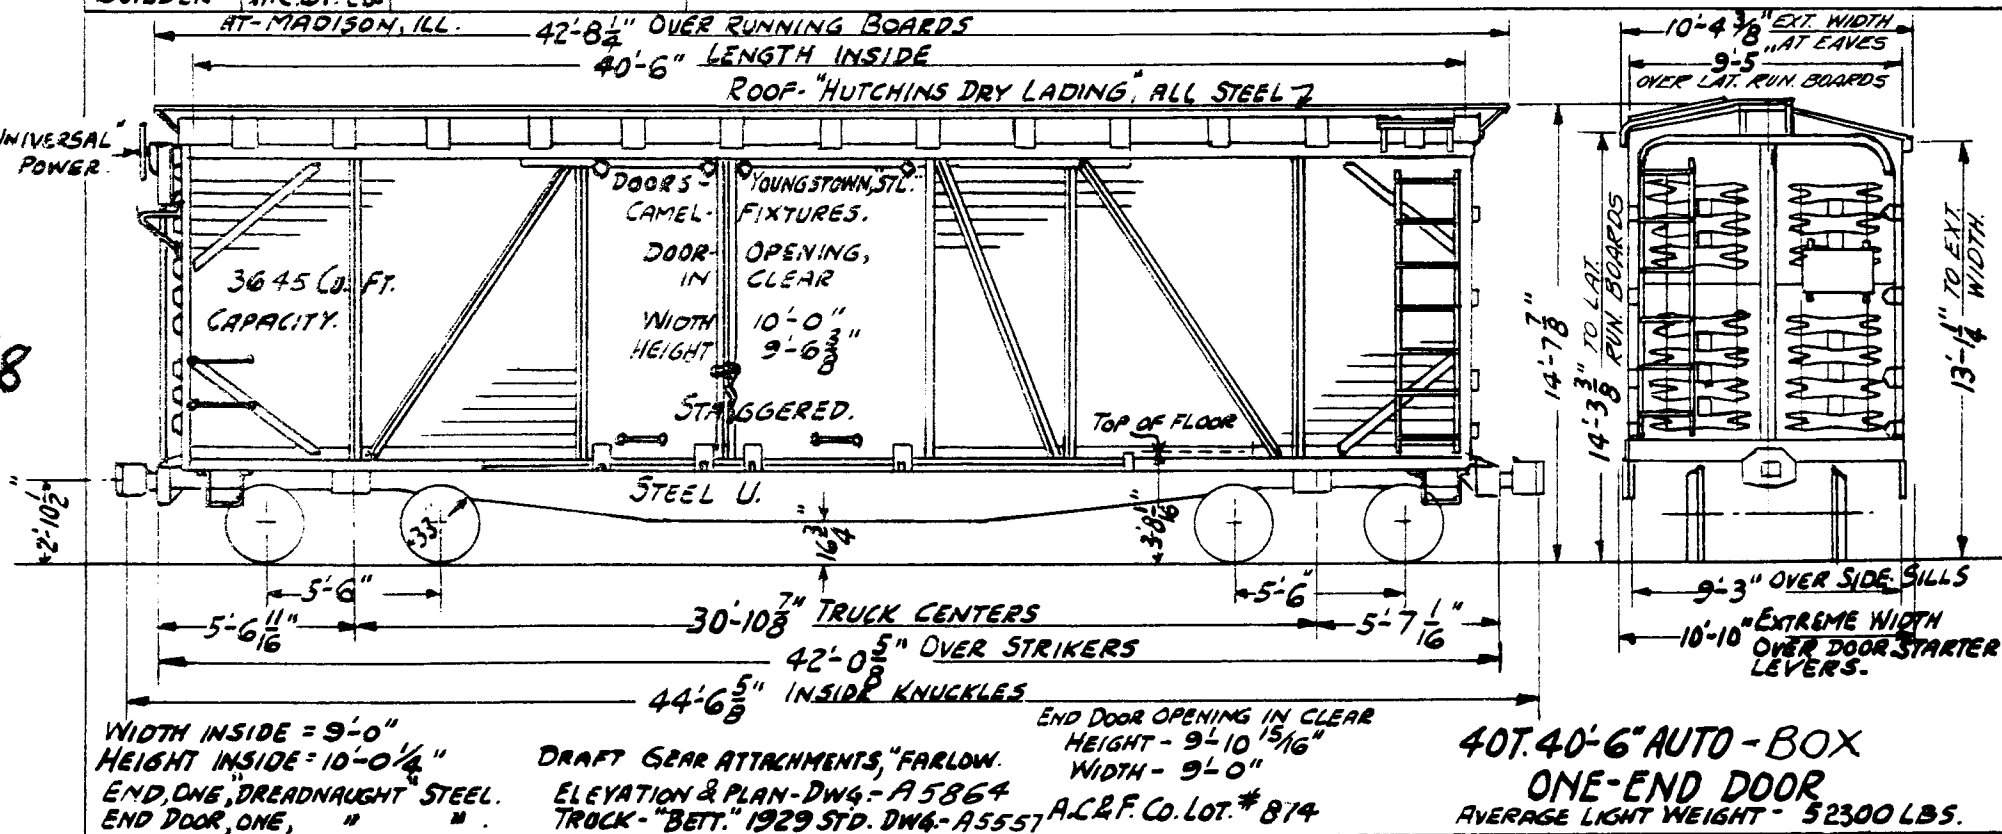 AT-MADISON, ILL.
42'-8 1/4" OVER RUNNING BOARDS
40'-6" LENGTH INSIDE
ROOF-"HUTCHINS DRY LADING", ALL STEEL
10'-4 3/8" EXT. WIDTH
AT EAVES
9'-5"
OVER LAT. RUN. BOARDS
NIVERSAL"
POWER.
DOORS - YOUNGSTOWN, STL."
CAMEL- FIXTURES.
DOOR- OPENING,
IN CLEAR
WIDTH 10'-0"
HEIGHT 9'-6 3/8"
STAGGERED.
3645 CU. FT.
CAPACITY.
8
TOP OF FLOOR
STEEL U.
2'-10 1/2"
33"
16 3/4"
3'-8 1/16"
14'-7 7/8"
14'-3 3/8" TO LAT.
RUN. BOARDS
13'-1 1/4" TO EXT.
WIDTH.
5'-6"
5'-6"
9'-3" OVER SIDE SILLS
5'-6 11/16"
30'-10 7/8" TRUCK CENTERS
5'-7 1/16"
10'-10" EXTREME WIDTH
OVER DOOR STARTER
LEVERS.
42'-0 5/8" OVER STRIKERS
44'-6 5/8" INSIDE KNUCKLES
WIDTH INSIDE = 9'-0"
HEIGHT INSIDE = 10'-0 1/4"
END, ONE, "DREADNAUGHT" STEEL.
END DOOR, ONE, " " .
DRAFT GEAR ATTACHMENTS, "FARLOW.
ELEVATION & PLAN-DWG.- A5864
TRUCK-"BETT." 1929 STD. DWG.- A5557
END DOOR OPENING IN CLEAR
HEIGHT - 9'-10 15/16"
WIDTH - 9'-0"
A.C.& F. CO. LOT. # 874
40T. 40'-6" AUTO - BOX
ONE-END DOOR
AVERAGE LIGHT WEIGHT - 52300 LBS.